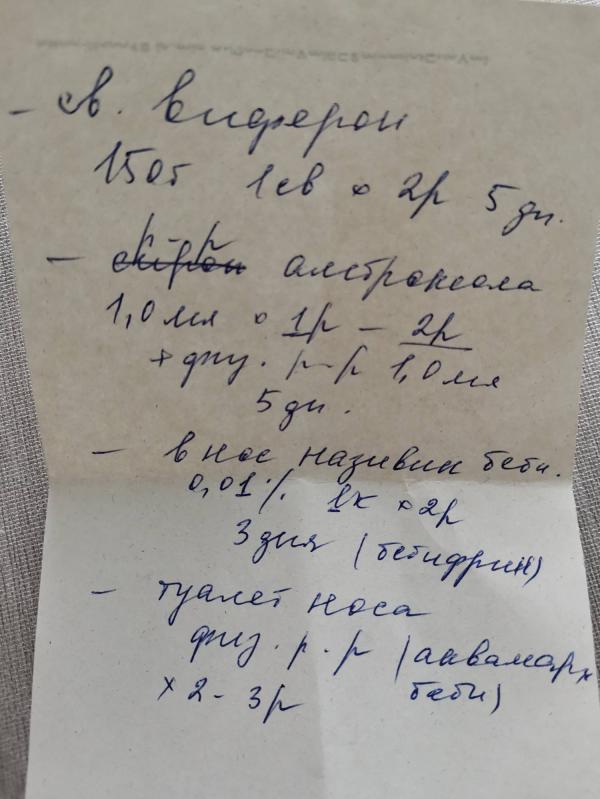 - св. Виферон
150т 1св × 2р 5 дн.
р-р
- сироп амброксола
1,0 мл × 1р - 2р
+ физ. р-р 1,0 мл
5 дн.
- в нос називин беби.
0,01% 1к × 2р
3 дня (бебифрин)
- туалет носа
физ. р-р (аквамар
× 2 - 3р беби)